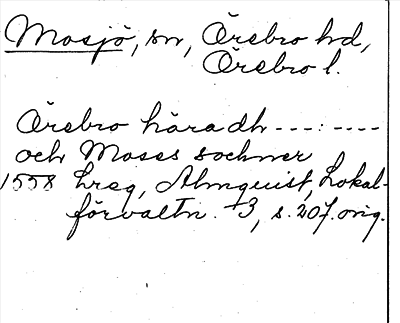 Mosjö, sn, Örebro hd,
Örebro l.
Örebro häradh ---:----
och Moses sochner
1558 hreg, Almquist, Lokal-
förvaltn. +3, s. 207. orig.